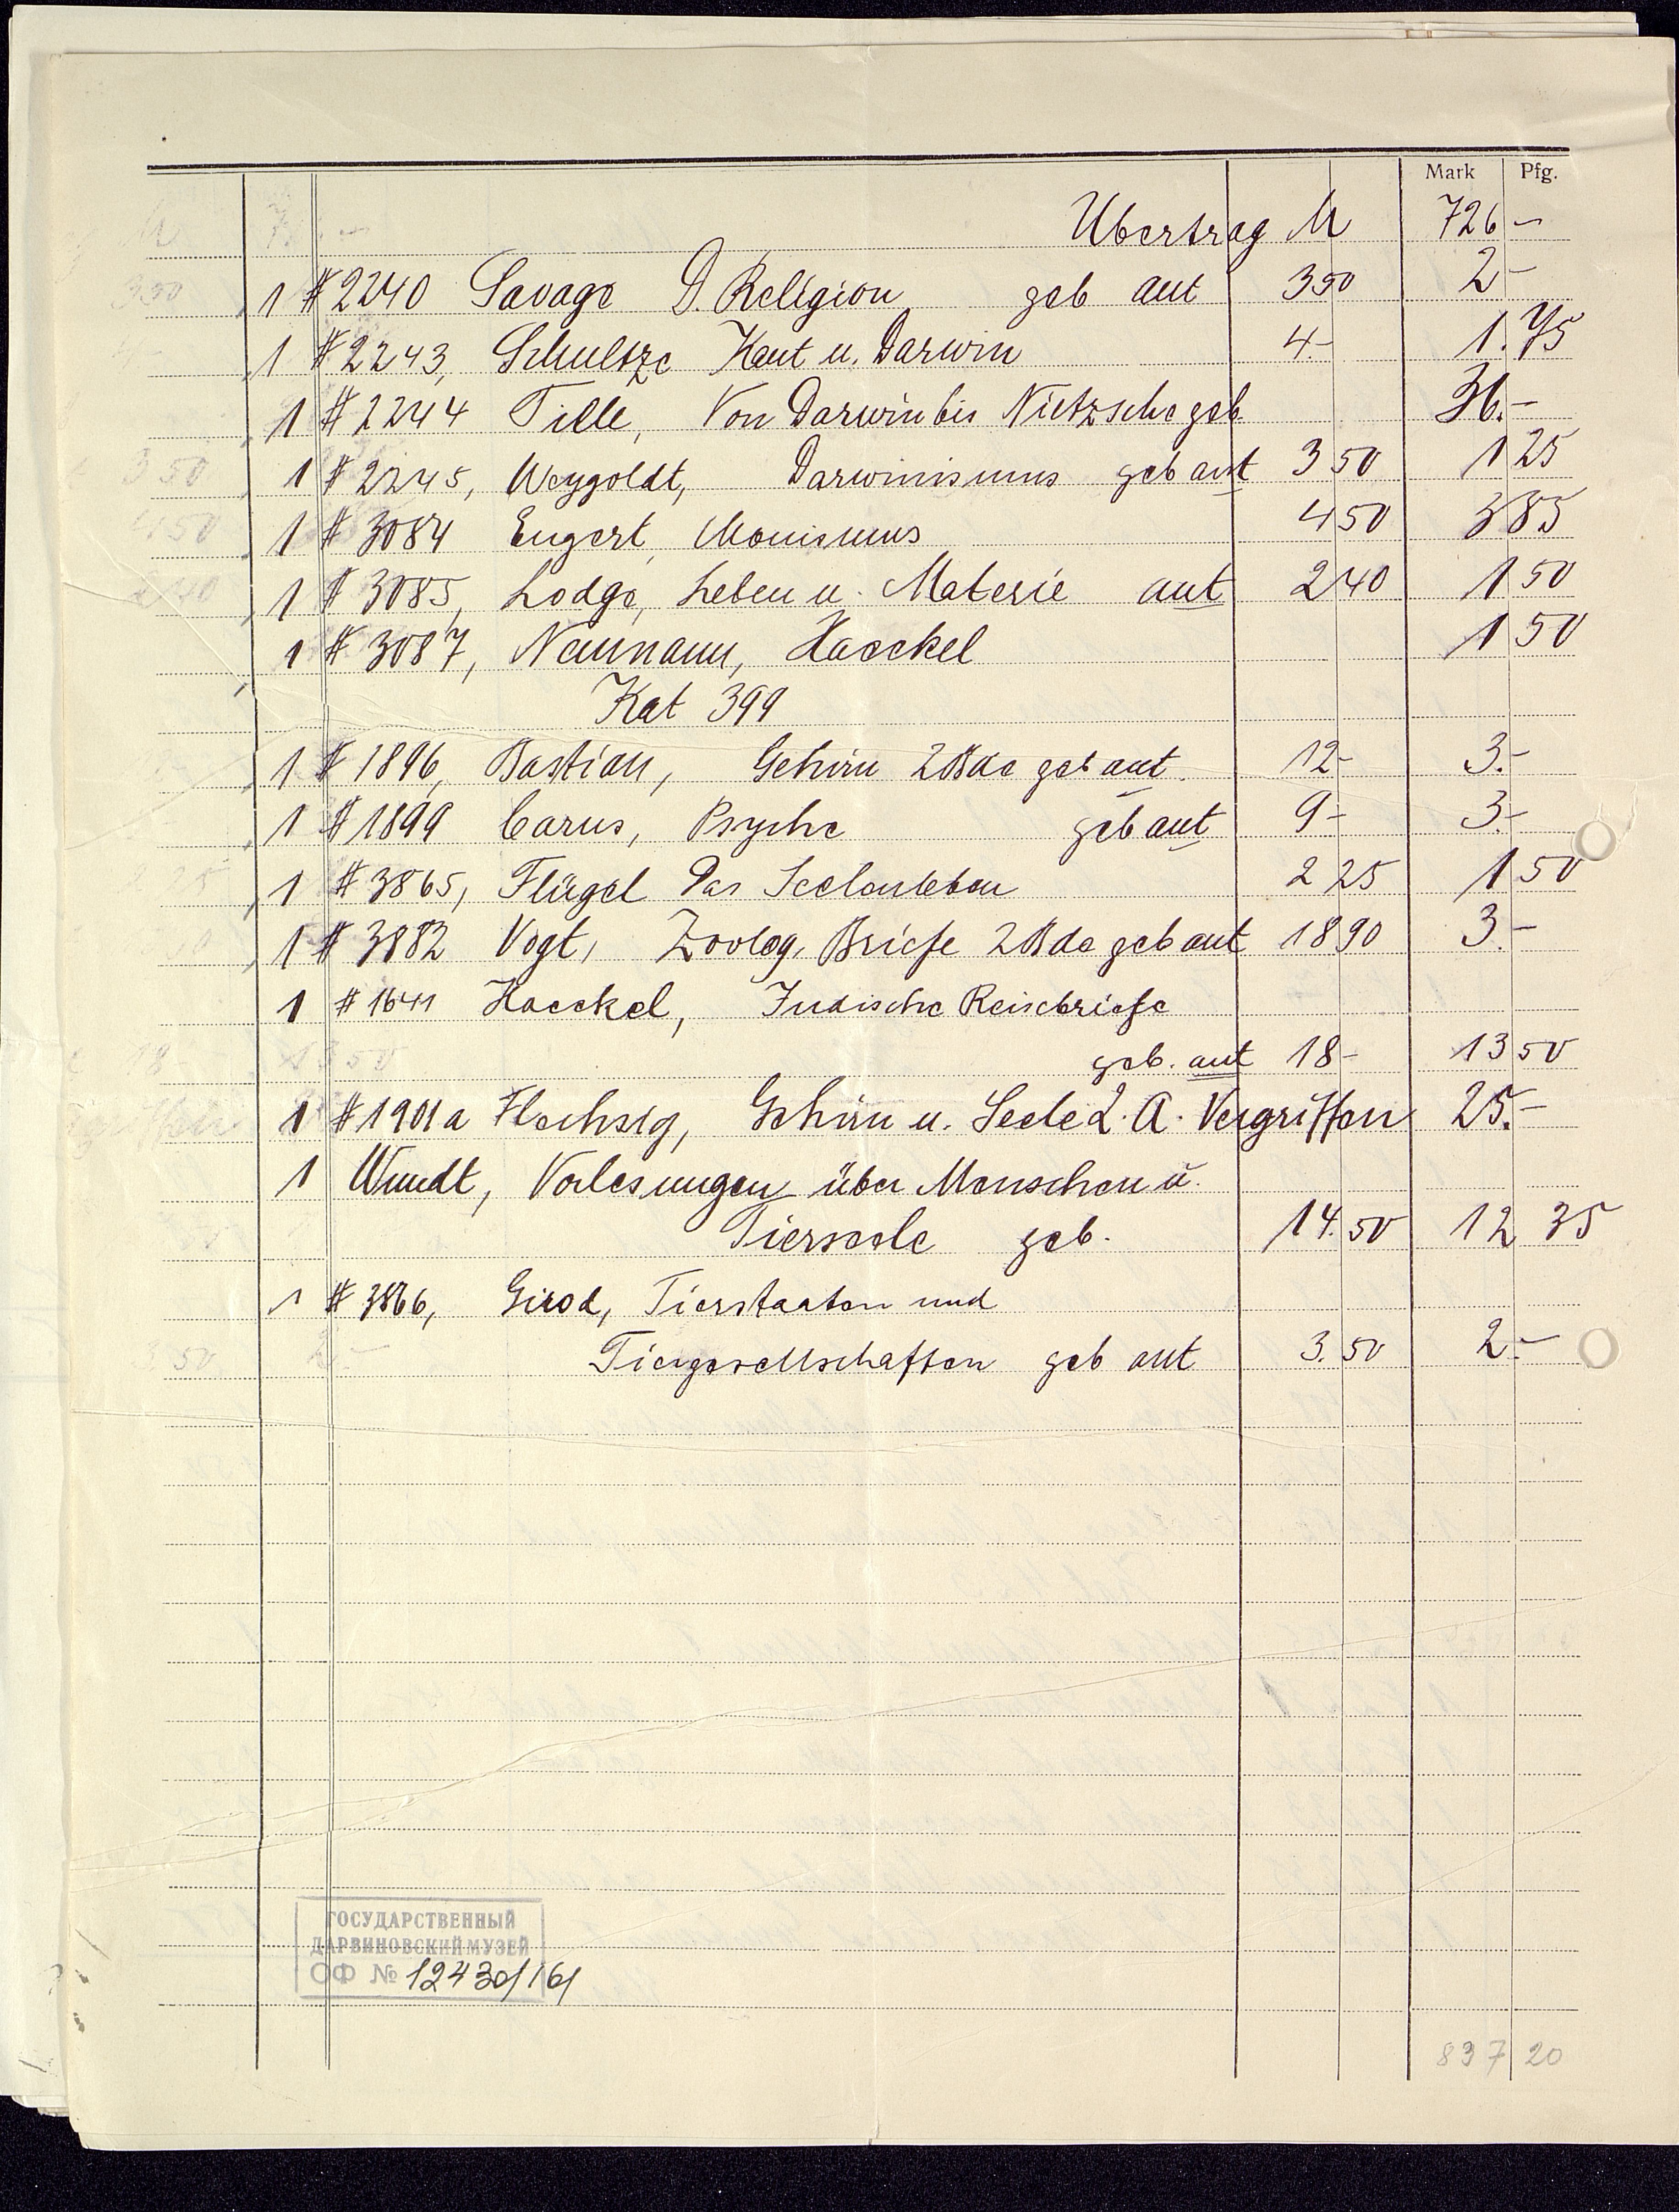 Mark Pfg.
Übertrag M 726 –
1 # 2240 Savage D. Religion geb ant 3 50 2 –
1 # 2243, Schultze Kant u. Darwin 4.– 1.75
1 # 2244 Tille, Von Darwin bis Nietzsche geb 36.–
1 # 2245, Weygoldt, Darwinismus geb ant 3 50 1 25
1 # 3084 Engert, Monismus 4 50 3 85
1 # 3085, Lodge, Leben u. Materie ant 2 40 1 50
1 # 3087, Neumann, Haeckel 1 50
Kat 399
1 # 1896, Bastian, Gehirn 2 Bde geb ant. 12 – 3.–
1 # 1899 Carus, Psyche geb ant 9 – 3.–
1 # 3865, Flügel Das Seelenleben 2 25 1 50
1 # 3882 Vogt, Zoolog. Briefe 2 Bde geb ant 18 90 3.–
1 # 1641 Haeckel, Indische Reisebriefe
geb. ant 18 – 13 50
1 # 1901a Flechsig, Gehirn u. Seele 2. A. Vergriffen 25.–
1 Wundt, Vorlesungen über Menschen u.
Tierseele geb. 14.50 12 35
1 # 3866, Girod, Tierstaaten und
Tiergesellschaften geb ant 3.50 2.–
ГОСУДАРСТВЕННЫЙ
ДАРВИНОВСКИЙ МУЗЕЙ
ОФ № 12430/161
837 20